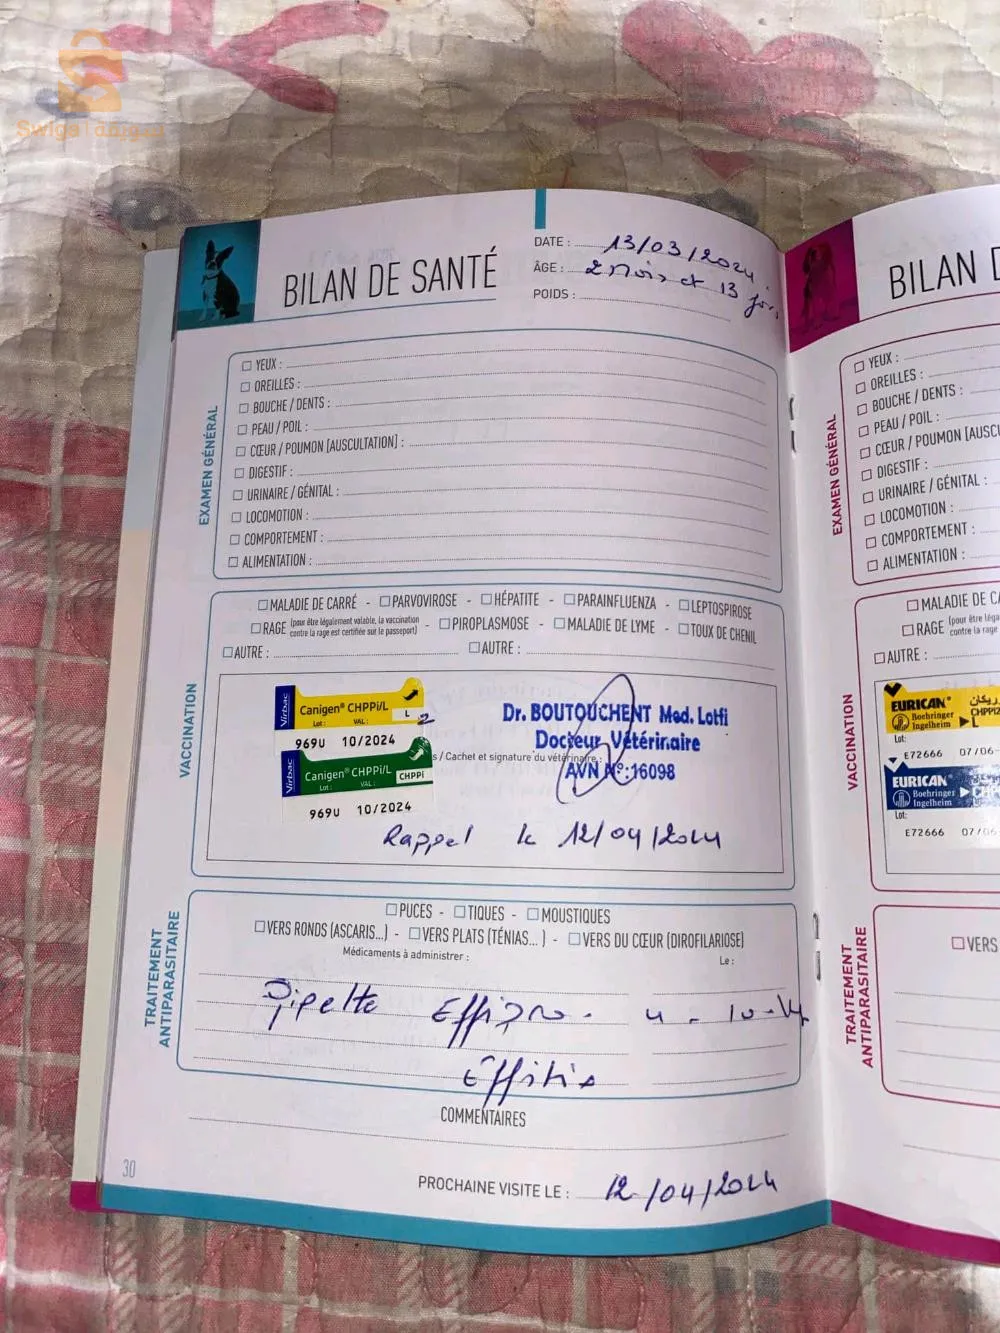 Swiga | سويقة
BILAN DE SANTÉ
DATE : 13/03/2024
ÂGE : 2 mois et 13 jours
POIDS :
EXAMEN GÉNÉRAL
YEUX :
OREILLES :
BOUCHE / DENTS :
PEAU / POIL :
CŒUR / POUMON [AUSCULTATION] :
DIGESTIF :
URINAIRE / GÉNITAL :
LOCOMOTION :
COMPORTEMENT :
ALIMENTATION :
VACCINATION
MALADIE DE CARRÉ - PARVOVIROSE - HÉPATITE - PARAINFLUENZA - LEPTOSPIROSE
RAGE (pour être légalement valable, la vaccination contre la rage est certifiée sur le passeport) - PIROPLASMOSE - MALADIE DE LYME - TOUX DE CHENIL
AUTRE : AUTRE :
Virbac Canigen® CHPPi/L
Lot : VAL : L
969U 10/2024
2
Virbac Canigen® CHPPi/L
Lot : VAL : CHPPi
969U 10/2024
Dr. BOUTOUCHENT Med. Lotfi
Docteur Vétérinaire
s / Cachet et signature du vétérinaire :
AVN N°:16098
Rappel le 12/04/2024
TRAITEMENT ANTIPARASITAIRE
PUCES - TIQUES - MOUSTIQUES
VERS RONDS (ASCARIS...) - VERS PLATS (TÉNIAS...) - VERS DU CŒUR (DIROFILARIOSE)
Médicaments à administrer : Le :
Pipette Effipro.
Effitix
COMMENTAIRES
30
PROCHAINE VISITE LE : 12/04/2024
BILAN D
EXAMEN GÉNÉRAL
YEUX :
OREILLES :
BOUCHE / DENTS :
PEAU / POIL :
CŒUR / POUMON [AUSCU
DIGESTIF :
URINAIRE / GÉNITAL :
LOCOMOTION :
COMPORTEMENT :
ALIMENTATION :
VACCINATION
MALADIE DE CA
RAGE (pour être léga
contre la rage
AUTRE :
EURICAN®
Boehringer Ingelheim L
Lot:
E72666 07/06
EURICAN®
Boehringer Ingelheim CHP
Lot:
E72666 07/06
TRAITEMENT ANTIPARASITAIRE
VERS